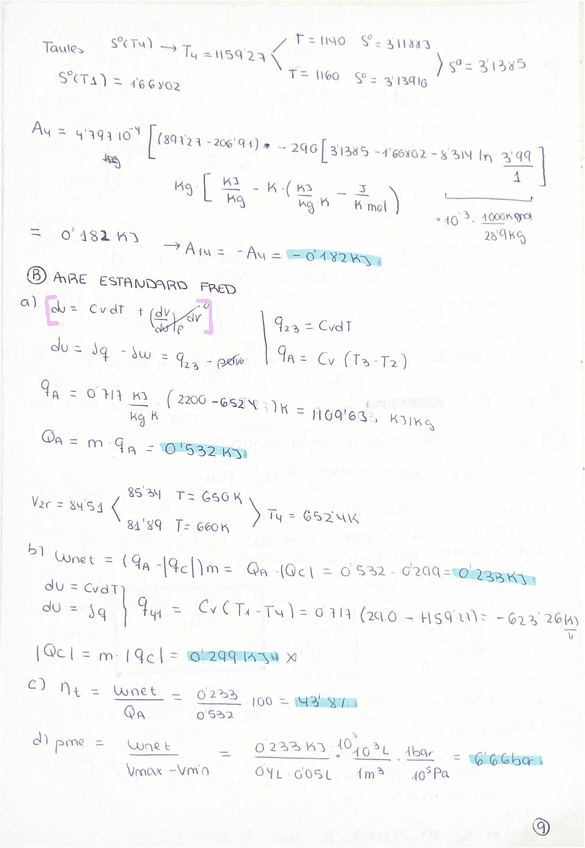 Taules S⁰(T4) → T4 = 1159'27 < T = 1140 S⁰ = 3'11883
T = 1160 S⁰ = 3'13916 > S⁰ = 3'1385
S⁰(T1) = 1'66802
A4 = 4'797 10⁻⁴ [(897'27 - 206'91) - 290 [3'1385 - 1'66802 - 8'314 ln 3'99/1]
kg [KJ/kg - K · (KJ/kg K - J/K mol) · 10⁻³ · 1000Kmol/28'9kg
= 0'182 KJ → A14 = -A4 = -0'182KJ
Ⓑ AIRE ESTANDARD FRED
a) [du = CvdT + (du/dv) dv] q23 = CvdT
du = δq - δw = q23 - pdv qA = Cv (T3 - T2)
qA = 0'717 KJ/kg K · (2200 - 652'4)K = 1109'63 KJ/kg
QA = m · qA = 0'532 KJ
V2r = 84'51 < 85'34 T = 650K
81'89 T = 660K > T4 = 652'4K
b) wnet = (qA - |qc|)m = QA - |Qc| = 0'532 - 0'299 = 0'233KJ
du = CvdT
du = δq } q41 = Cv (T1 - T4) = 0'717 (290 - 1159'27) = -623'26 KJ
|Qc| = m · |qc| = 0'299 KJ
c) ηt = wnet/QA = 0'233/0'532 · 100 = 43'8%
d) pme = wnet/Vmax - Vmin = 0'233 KJ · 10³/0'4L · 0'05L · 10³L/1m³ · 1bar/10⁵Pa = 6'66bar
⑨